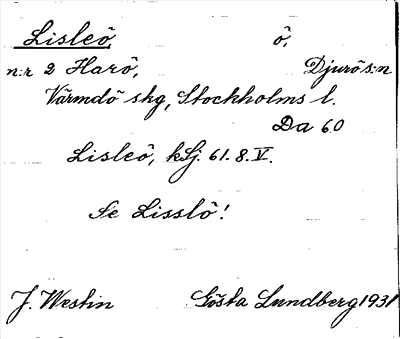 Lisleö, ö,
n:r 2 Harö, Djurö s:n
Värmdö skg, Stockholms l.
Da 60
Lisleö, kSj. 61. 8. V.
Se Lisslö!
J. Westin Gösta Lundberg 1931